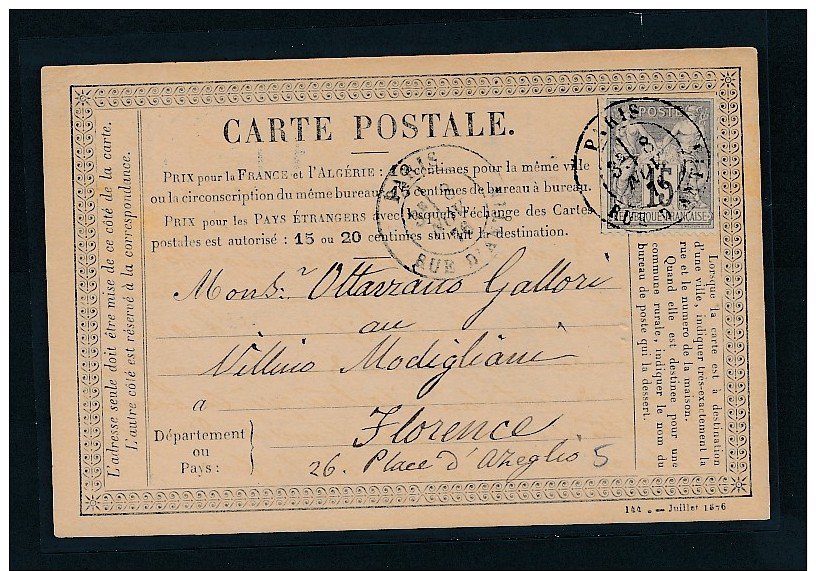 CARTE POSTALE.
PRIX pour la FRANCE et l'ALGÉRIE : centimes pour la même ville
ou la circonscription du même bureau, centimes de bureau à bureau.
PRIX pour les PAYS ÉTRANGERS avec lesquels l'échange des Cartes
postales est autorisé : 15 ou 20 centimes suivant la destination.
PARIS
RUE D'A
POSTE
15
RÉPUBLIQUE FRANÇAISE
PARIS
8
NOV
Monsr. Ottaviano Gallori
au
Villino Modigliani
à
Florence
Département
ou
Pays :
26. Place d'Azeglio 5
L'adresse seule doit être mise de ce côté de la carte.
L'autre côté est réservé à la correspondance.
Lorsque la carte est à destination
d'une ville, indiquer très-exactement la
rue et le numéro de la maison.
Quand elle est destinée pour une
commune rurale, indiquer le nom du
bureau de poste qui la dessert.
144 — Juillet 1876